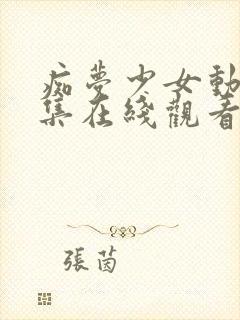 痴夢少女動
集在綫觀看
張茵